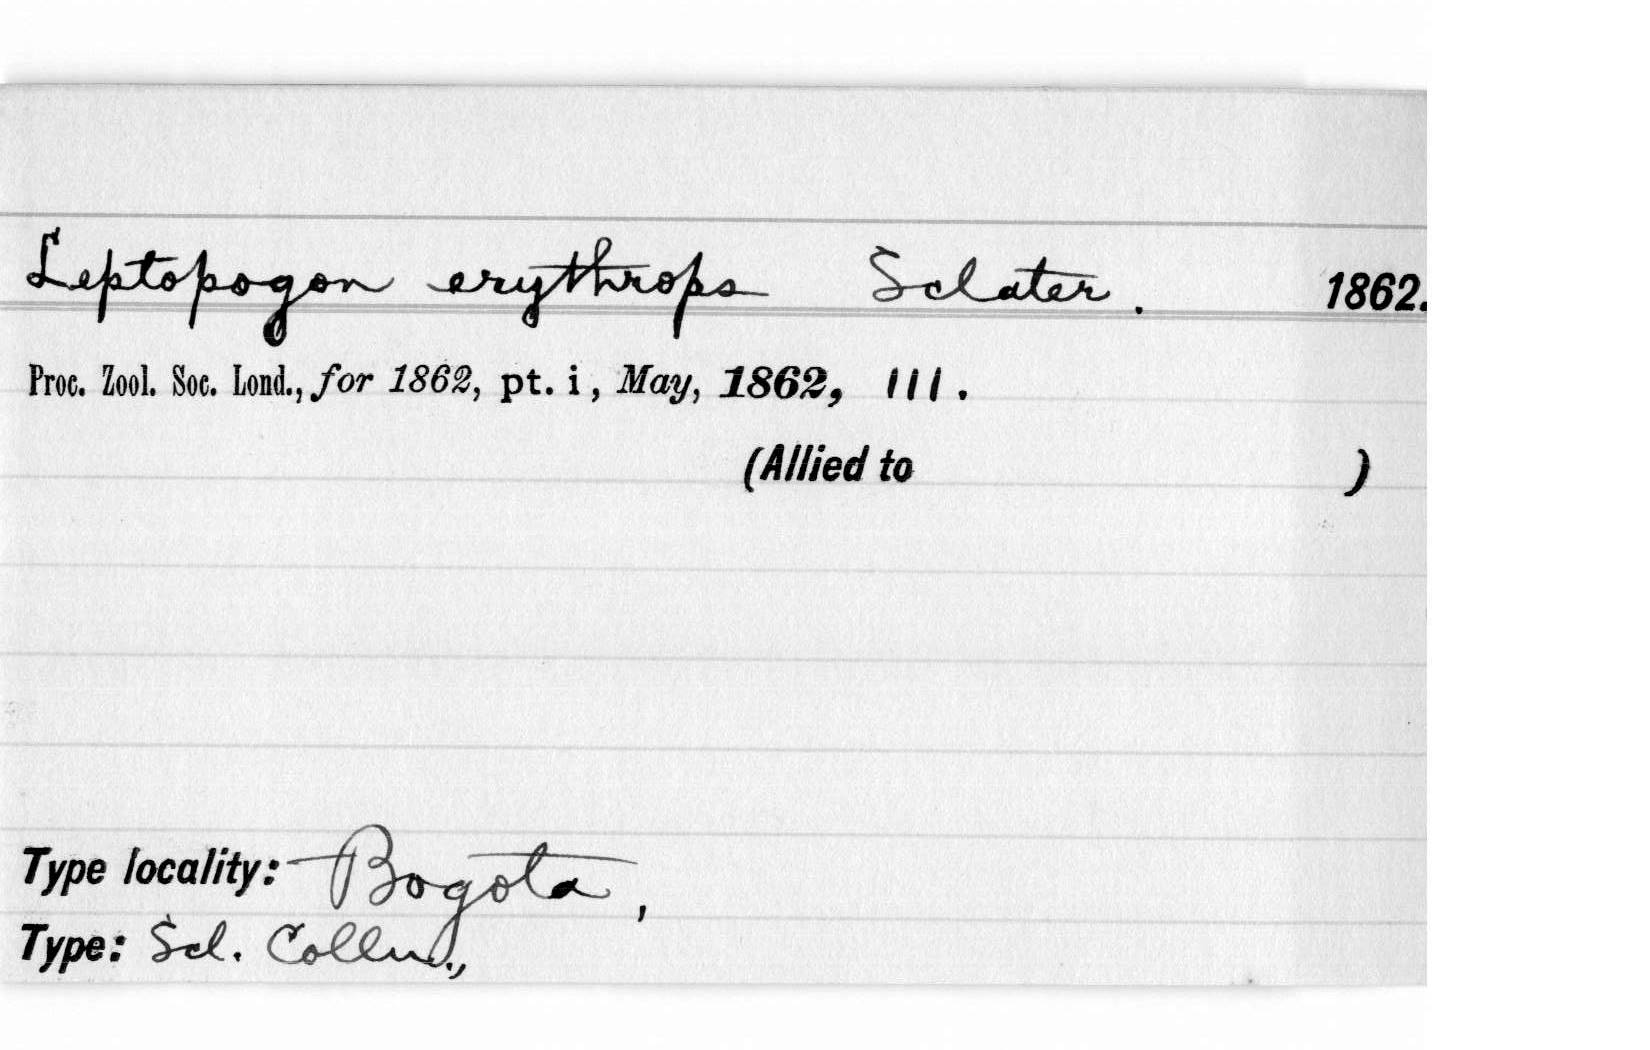 Leptopogon erythrops Sclater. 1862.
Proc. Zool. Soc. Lond., for 1862, pt. i, May, 1862, 111.
(Allied to )
Type locality: Bogota,
Type: Scl. Colln.,